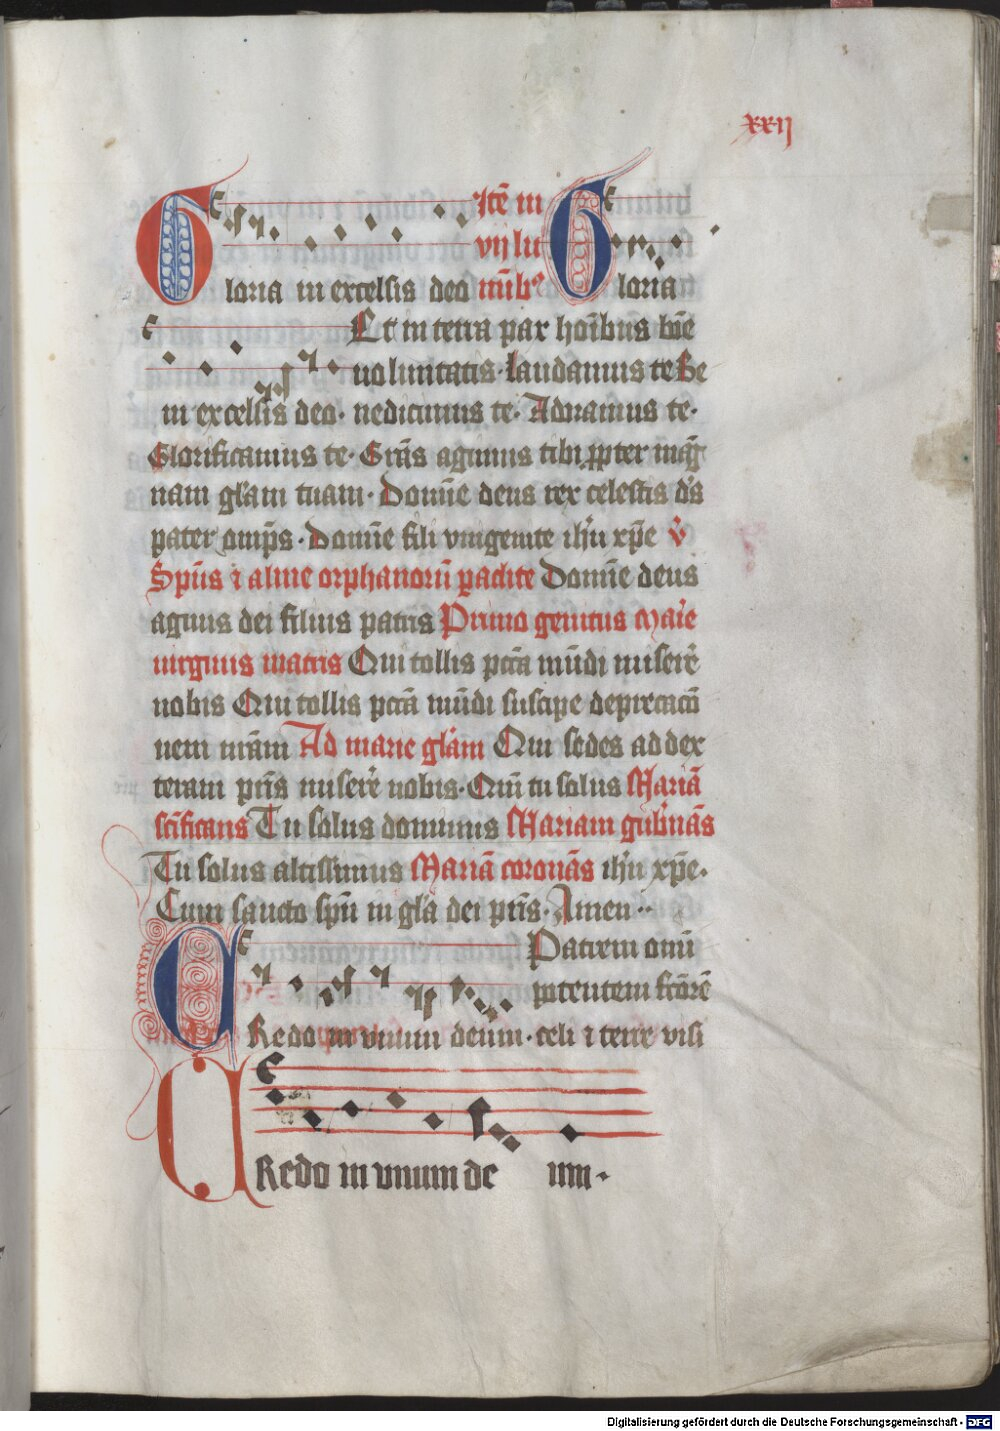 xxij
Gloria in excelsis deo
Itē in
vij lu
mībꝰ
Gloria
in excelsis deo·
Et in terra pax hoībus bōe
voluntatis· laudamus te Be
nedicimus te· Adoramus te·
Glorificamus te· Grās agimus tibi ꝓpter mag
nam glāam tuam· Domīe deus rex celestis ds̄
pater omp̄s· Domīe fili vnigenite ihū xp̄e v̄
Spūs ⁊ alme orphanorū paclite Domīe deus
agnus dei filius patris Primo genitus Marie
virginis matris Qui tollis pctā mūdi misere
nobis Qui tollis pctā mūdi suscipe deprecacō
nem nrām Ad marie glāam Qui sedes ad dex
teram pr̄is misere nobis· Qm̄ tu solus Mariā
sctīficans Tu solus dominus Mariam gubn̄as
Tu solus altissimus Mariā coronās ihū xp̄e·
Cum sancto spū in glā dei pr̄is· Amen··
Patrem omī
potentem fctōrē
CRedo in vnum deum· celi ⁊ terre visi
CRedo in vnum de um·
Digitalisierung gefördert durch die Deutsche Forschungsgemeinschaft - DFG